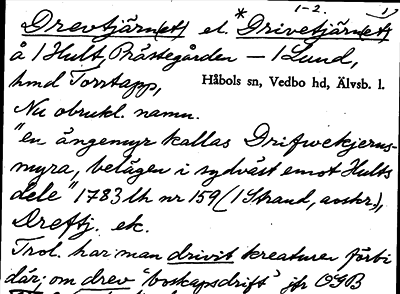 1-2. 1)
Drevtjärn(et) el. *Drivetjärn(et)
å 1 Hult, Prästegården — 1 Lund,
hmd Torrtapp, Håbols sn, Vedbo hd, Älvsb. l.
Nu obrukl. namn.
"en ängemyr kallas Drifwekjerns-
myra, belägen i sydväst emot Hults
dele" 1783 lh nr 159 (1 Strand, avskr.),
Dreftj. etc.
Trol. har man drivit kreaturen förbi
där; om drev "boskapsdrift" jfr OGB